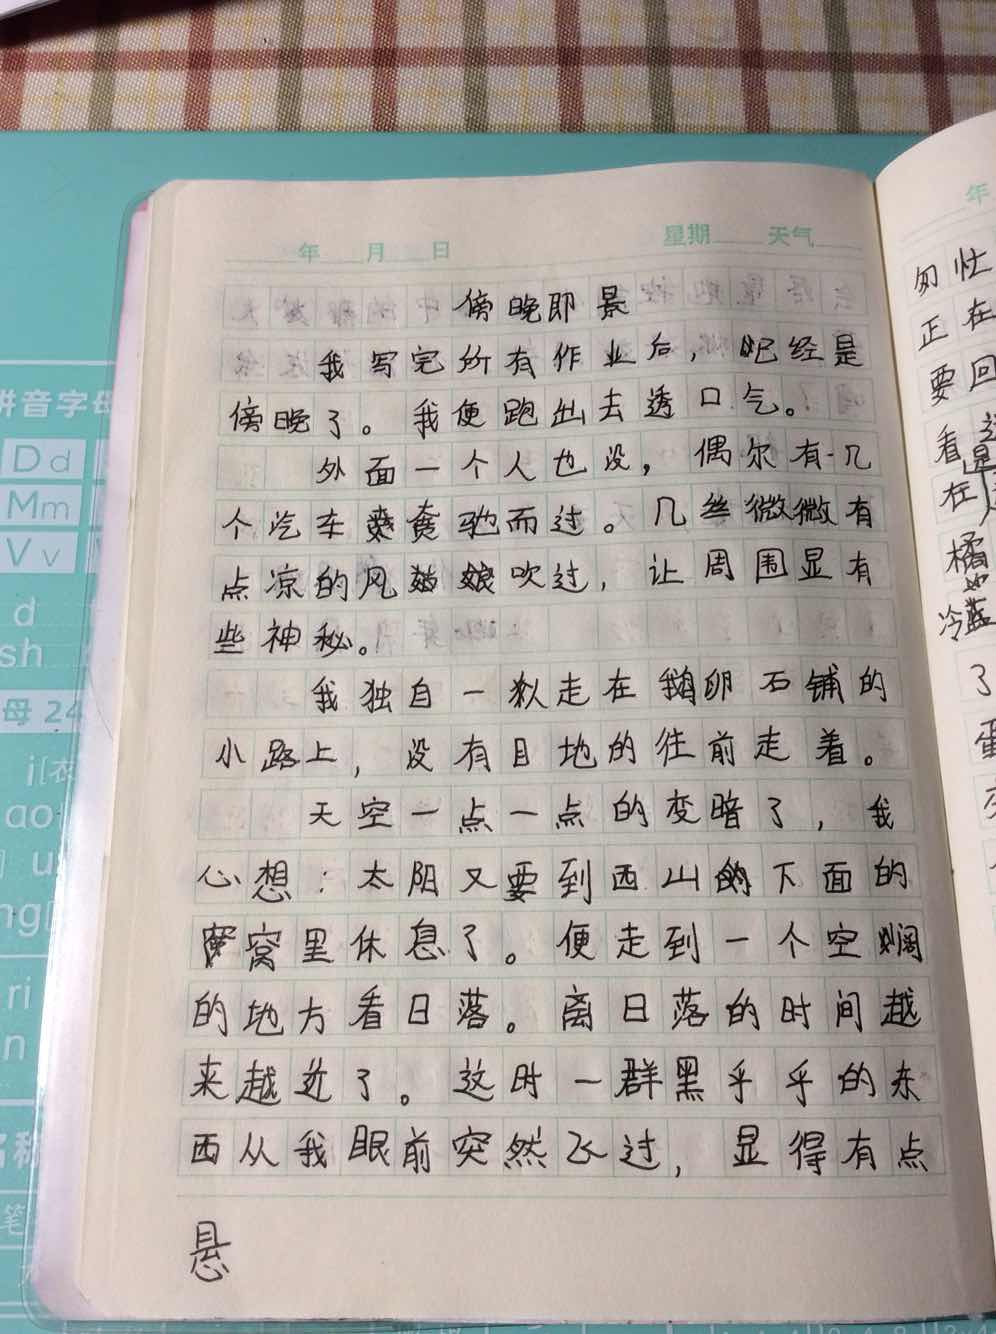 年 月 日 星期 天气
傍晚即景
我写完所有作业后，已经是
傍晚了。我便跑出去透口气。
外面一个人也没，偶尔有几
个汽车奔驰而过。几丝微微有
点凉的风娘吹过，让周围显有
些神秘。
我独自一人走在鹅卵石铺的
小路上，没有目地的往前走着。
天空一点一点的变暗了，我
心想：太阳又要到西山的下面的
窝里休息了。便走到一个空阔
的地方看日落。离日落的时间越
来越近了。这时一群黑乎乎的东
西从我眼前突然飞过，显得有点
悬
年
匆忙
正在
要回
看这是
在
橘
冷蓝
了
拼音字母
Dd
Mm
Vv
d
sh
母 24
i[衣
ao
ng
ri
n
名称
笔